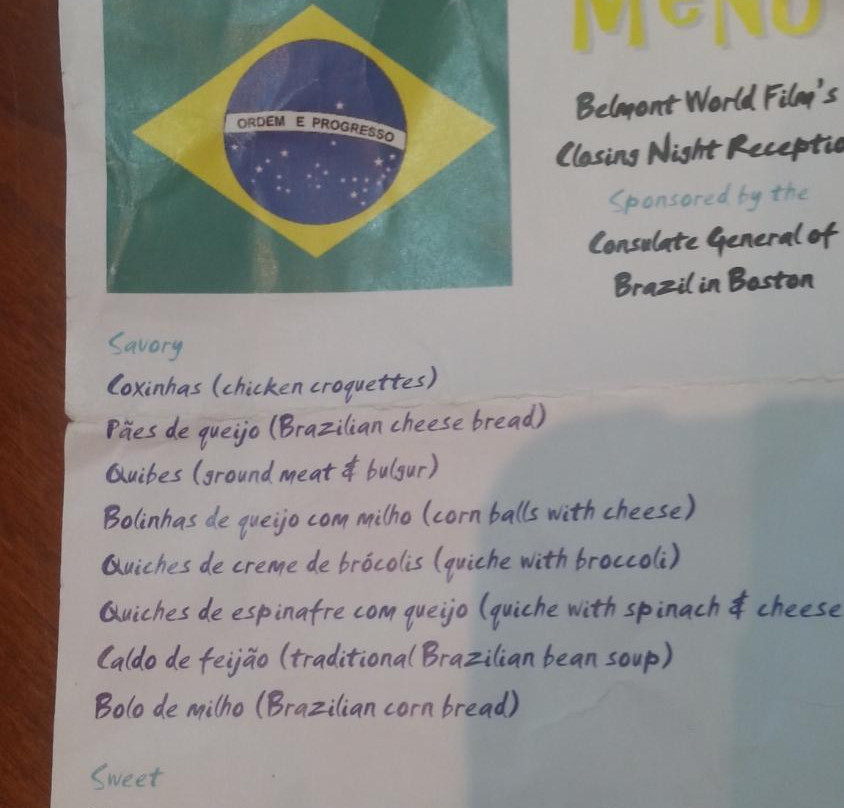 ORDEM E PROGRESSO
MENU
Belmont World Film's
Closing Night Receptio
Sponsored by the
Consulate General of
Brazil in Boston
Savory
Coxinhas (chicken croquettes)
Pães de queijo (Brazilian cheese bread)
Quibes (ground meat & bulgur)
Bolinhas de queijo com milho (corn balls with cheese)
Quiches de creme de brócolis (quiche with broccoli)
Quiches de espinafre com queijo (quiche with spinach & cheese
Caldo de feijão (traditional Brazilian bean soup)
Bolo de milho (Brazilian corn bread)
Sweet